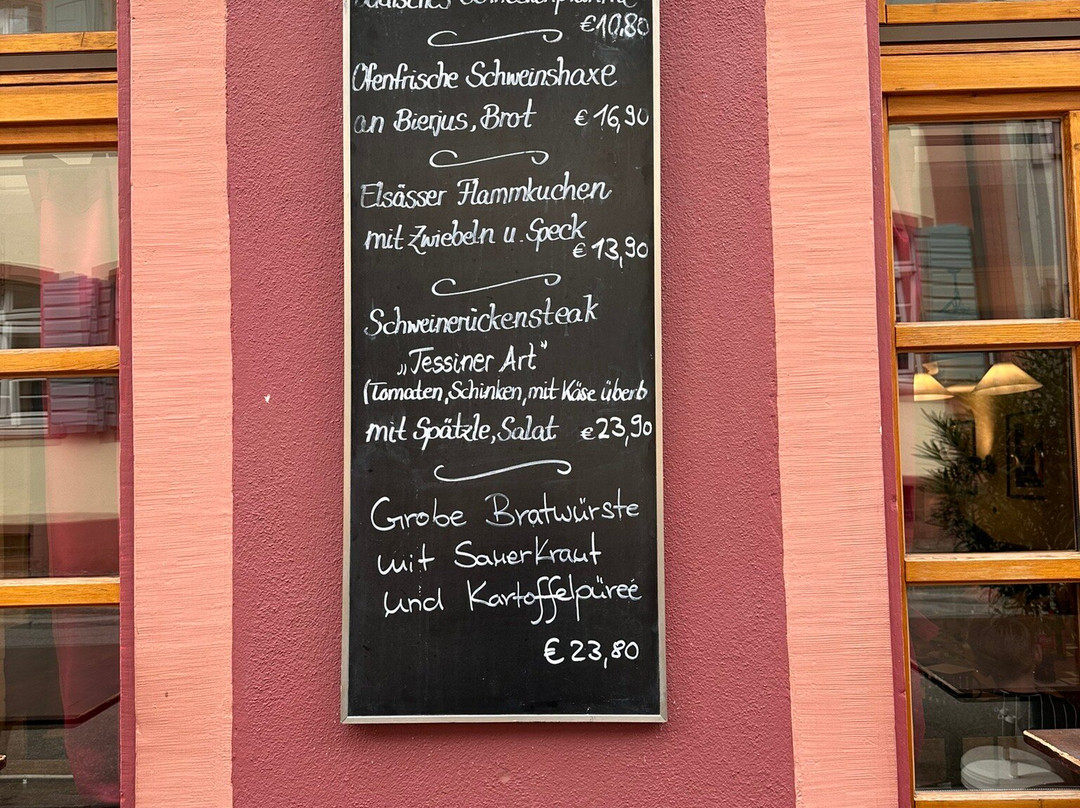 Badisches Schneckenpfännle
€10.80
Ofenfrische Schweinshaxe
an Bierjus, Brot €16,90
Elsässer Flammkuchen
mit Zwiebeln u. Speck
€13,90
Schweinerückensteak
„Tessiner Art"
(Tomaten, Schinken, mit Käse überb
mit Spätzle, Salat €23,90
Grobe Bratwürste
mit Sauerkraut
und Kartoffelpüreé
€23,80